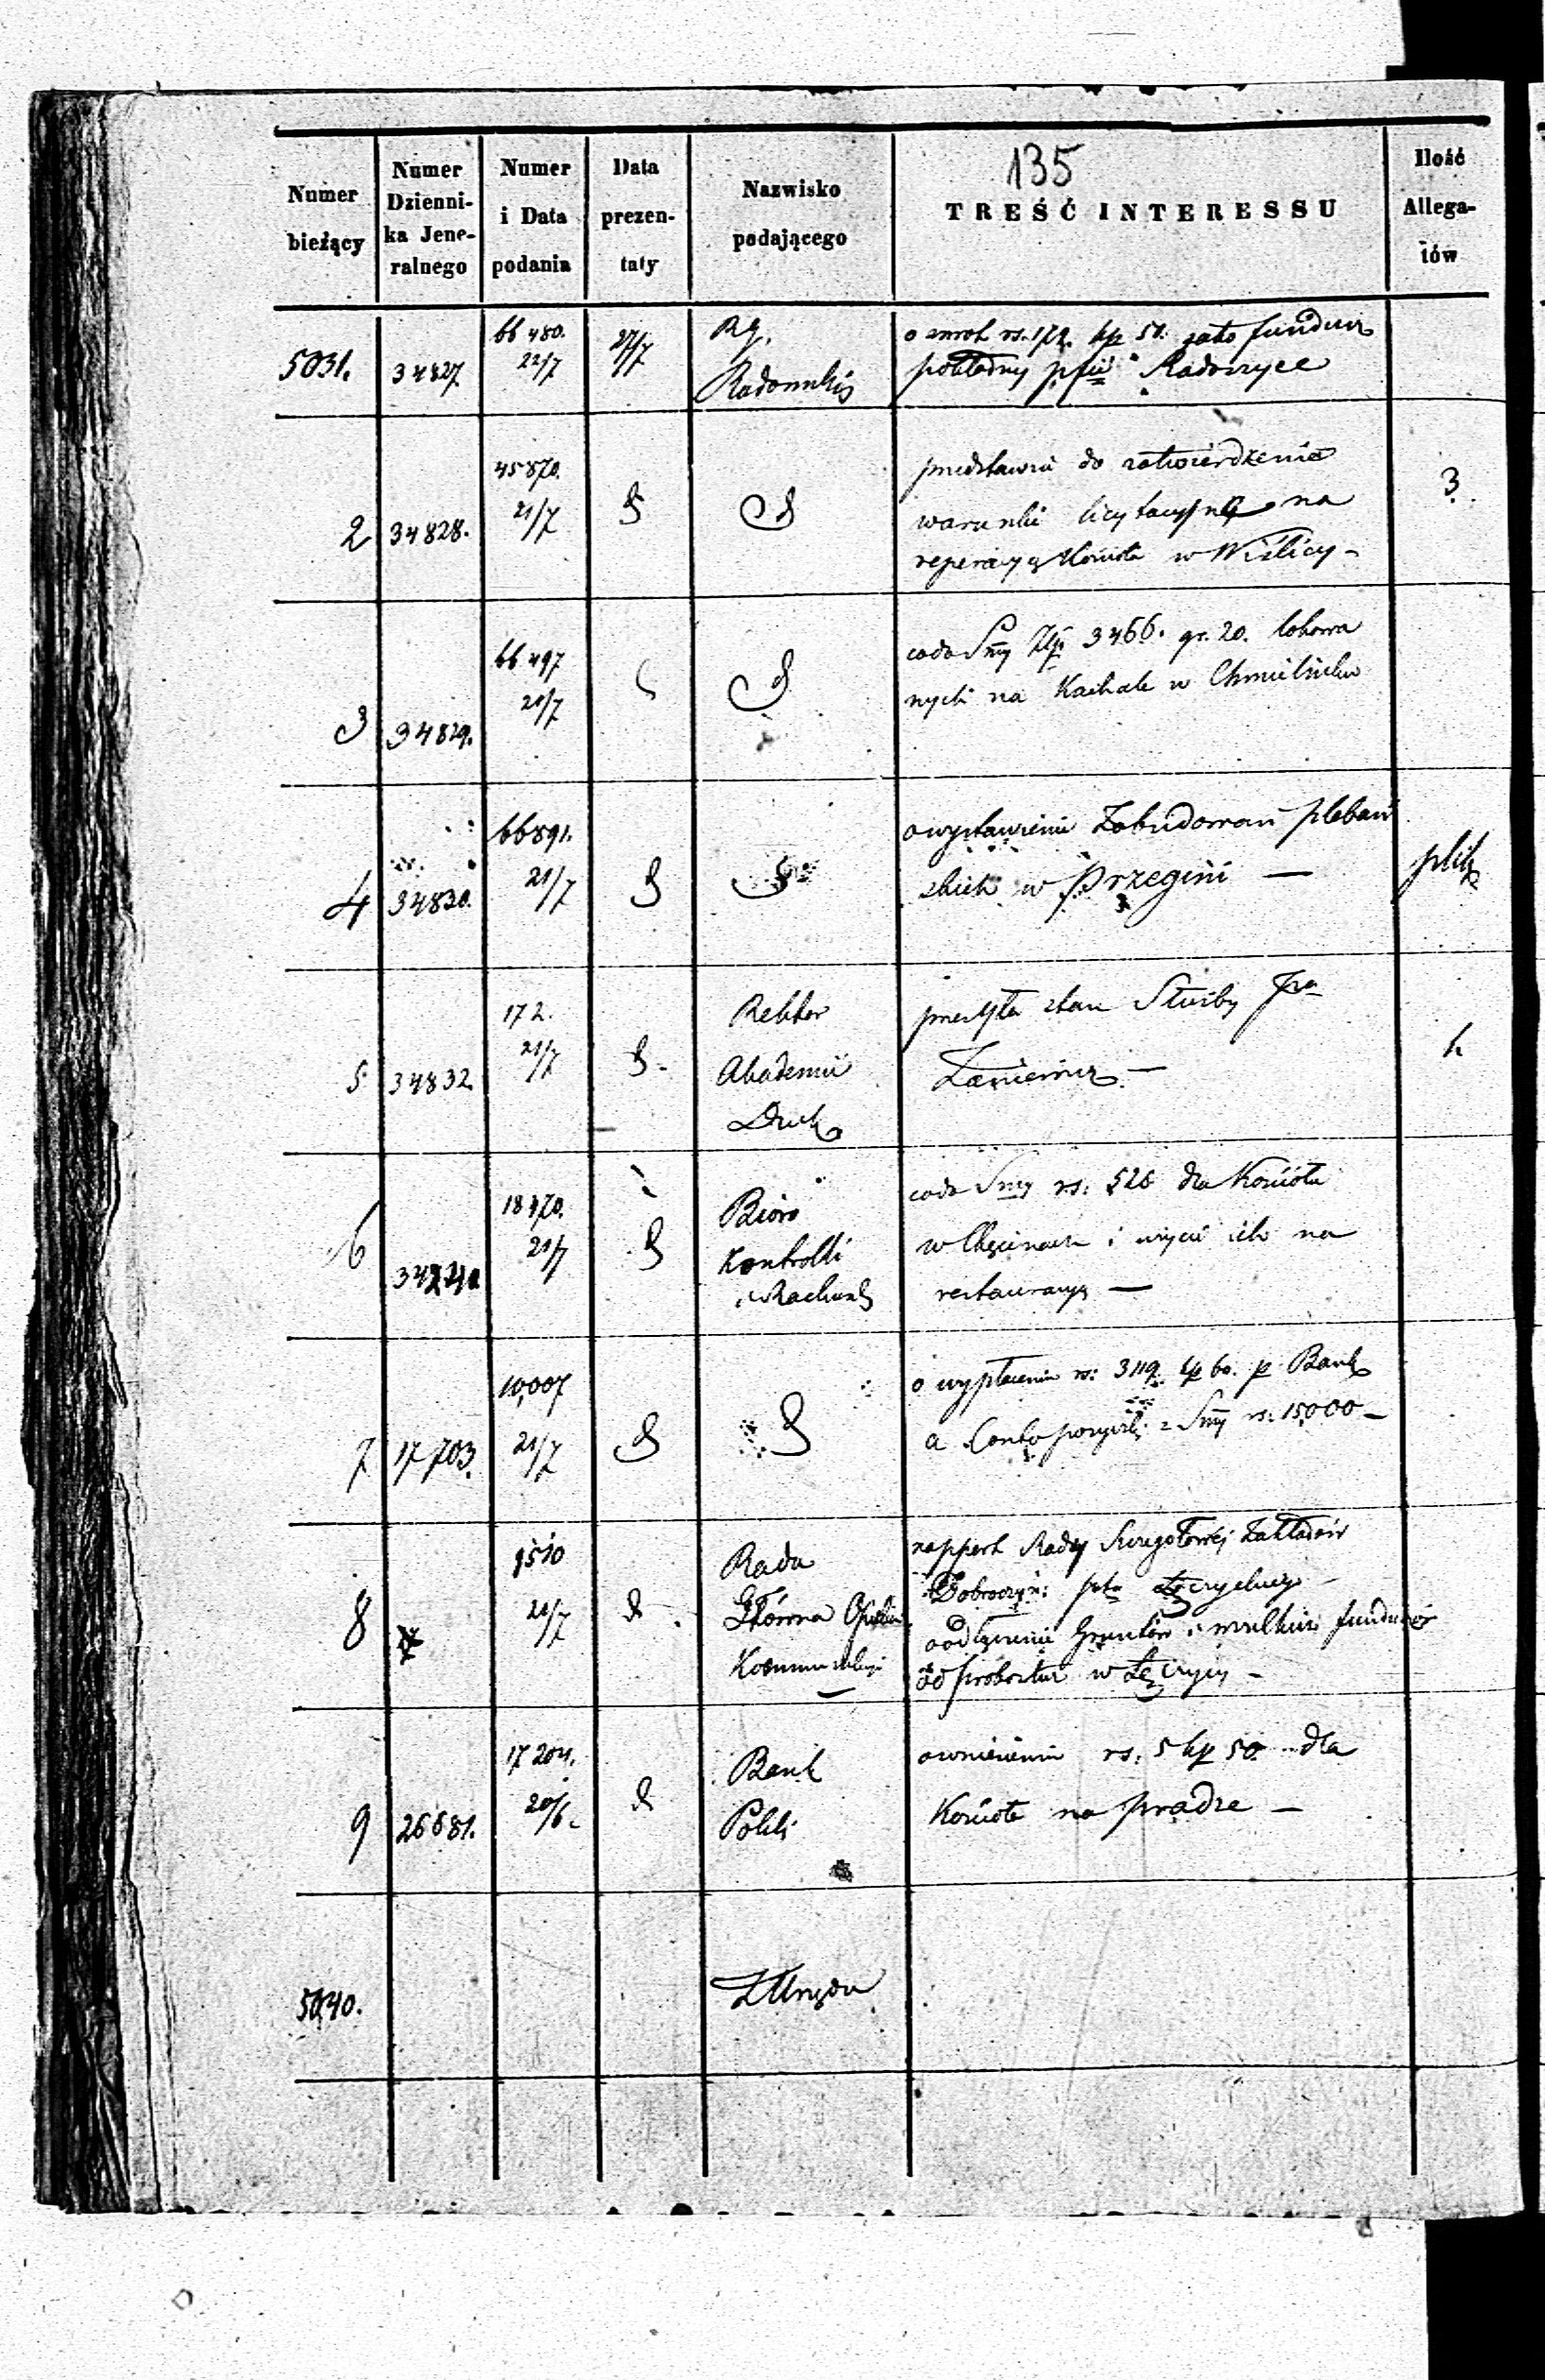 135
Numer bieżący
Numer Dzienni-ka Jene-ralnego
Numer i Data podania
Data prezen-taty
Nazwisko podającego
TREŚĆ INTERESSU
Ilość Allega-tów
5031. 34827 66480. 22/7 27/7 RG. Radomski
o zwrot rs. 172. kp 50. jako fundusz
pokładny pfii Radoszyce
2 34828. 45870. 21/7
przedstawia do zatwierdzenia
warunki licytacyjne na
reperacyą Kościoła w Wiślicy -
3
3 34829. 66497 21/7
co do Smy Złp. 3466. gr. 20. lokowa
nych na Kahale w Chmielniku
4 34830. 66891. 21/7
o wystawienie Zabudowań pleban
skich w Przegini —
plik
5 34832. 172. 21/7
Rektor
Akademii
Duch
przesyła stan Służby
6 18470. 21/7
Bióro
Kontrolli
Rachunk
co do Smy rs: 526 dla Kościoła
w Chęcinach i użycie ich na
restauracyą —
7 17703. 10,007 21/7
o wypłacenie rs: 3119. kp 60. p. Bank
a Conto pożyczk: z Smy rs: 15000 —
8 9510 21/7
Rada
Główna Opiekuń
rapport Rady Szczegołowej Zakładów
Dobroczyń: ptu Łęczyckiego
o odłączenie Gruntów i wszelkich funduszów
od probostwa w Łęczycy -
9 26681. 17204. 20/6
Bank
Polski
o wniesienie rs. 5 kp 50 dla
Kościoła na pradze —
5040.
Z Urzędu